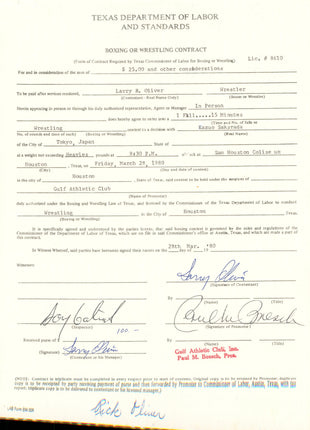 TEXAS DEPARTMENT OF LABOR
AND STANDARDS
BOXING OR WRESTLING CONTRACT
(Form of Contract Required by Texas Commissioner of Labor for Boxing or Wrestling)
Lic. # 8610
For and in consideration of the sum of $ 25.00 and other considerations
To be paid after services rendered, Larry H. Oliver Wrestler
(Contestant - Real Name Only) (Boxer or Wrestler)
Herein appearing in person or through his duly authorized representative, Agent or Manager In Person
does hereby agree to enter into a 1 Fall....15 Minutes
(Time and No. of Falls or
Wrestling contest to a decision with Kazuo Sakurada
No. of rounds and time of each) (Boxing or Wrestling) (Opponent - Real Name Only)
of the City of Tokyo, Japan State of
at a weight not exceeding Heavies pounds at 8:30 P.M. o'clock at Sam Houston Coliseum
Houston, Texas, on Friday, March 28, 1980
(Day and date of contest)
in the city of Houston State of Texas, said contest to be held under the auspices of
Gulf Athletic Club
(Name of Promoter)
duly authorized under the Boxing and Wrestling Law of Texas, and licensed by the Commissioner of the Department of Labor to conduct
Wrestling in the City of Houston Texas.
(Boxing or Wrestling)
It is specifically agreed and understood by the parties hereto, that said boxing contest is governed by the rules and regulations of the
Commissioner of the Department of Labor of Texas, which are on file in said Commissioner's office at Austin, Texas, and which are made a part of
this contract.
In Witness Whereof, said parties have hereunto signed their names on the 28th Mar. '80
(day and date)
Witnesses:
Larry Oliver
(Signature of Contestant)
By
(Name) (Title)
(Inspector)
100.-
(Signature of Promoter)
Received payment of $
By
(Name) (Title)
(Signature) Larry Oliver
Gulf Athletic Club, Inc.
Paul M. Boesch, Pres.
(NOTE): Contract in duplicate must be completed in every respect prior to start of contests. Original copy to be retained by Promoter; duplicate
copy is to be receipted by party receiving payment of purse and then forwarded by Promoter to Commissioner of Labor, Austin, Texas, with tax
report. Duplicate copy is to be delivered to contestant or his licensed manager.